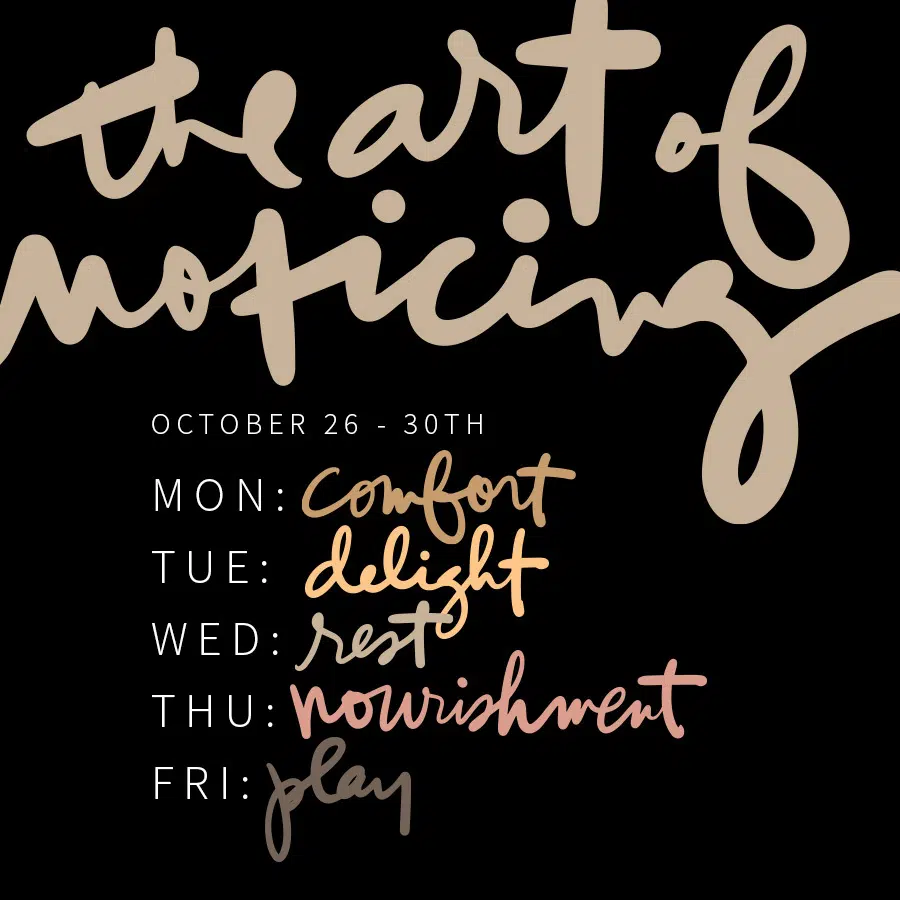 the art of
noticing
OCTOBER 26 - 30TH
MON: comfort
TUE: delight
WED: rest
THU: nourishment
FRI: play